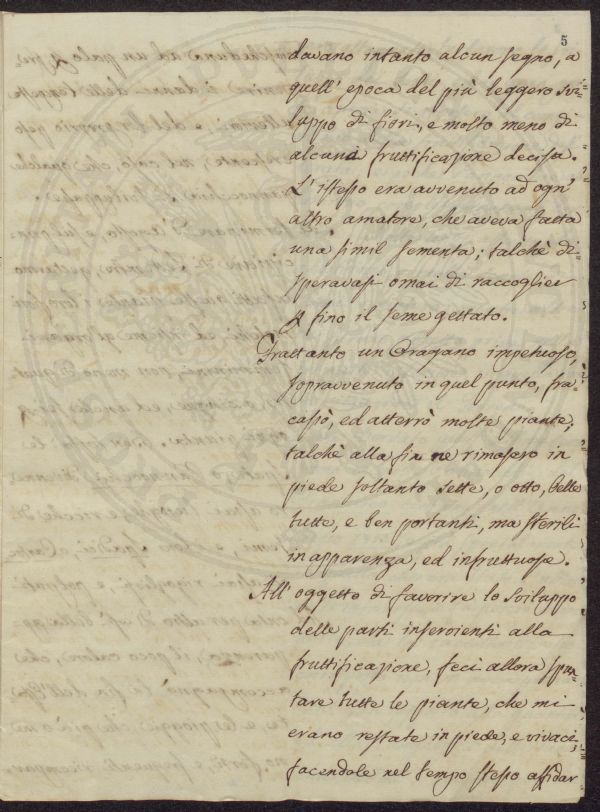 5
davano intanto alcun segno, a
quell' epoca del più leggero svi=
luppo di fiori, e molto meno di
alcuna fruttificazione decisa.
L' istesso era avvenuto ad ogn'
altro amatore, che aveva fatta
una simil sementa; talchè di=
speravasi omai di raccoglier
fino il seme gettato.
Frattanto un Oragano impetuoso,
sopravvenuto in quel punto, fra=
cassò, ed atterrò molte piante;
talchè alla fin ne rimasero in
piede soltanto sette, o otto, belle
tutte, e ben portanti, ma sterili
in apparenza, ed infruttuose.
All' oggetto di favorire lo sviluppo
delle parti inservienti alla
fruttificazione, feci allora spun=
tare tutte le piante, che mi
erano restate in piede, e vivaci,
facendole nel tempo stesso affidar